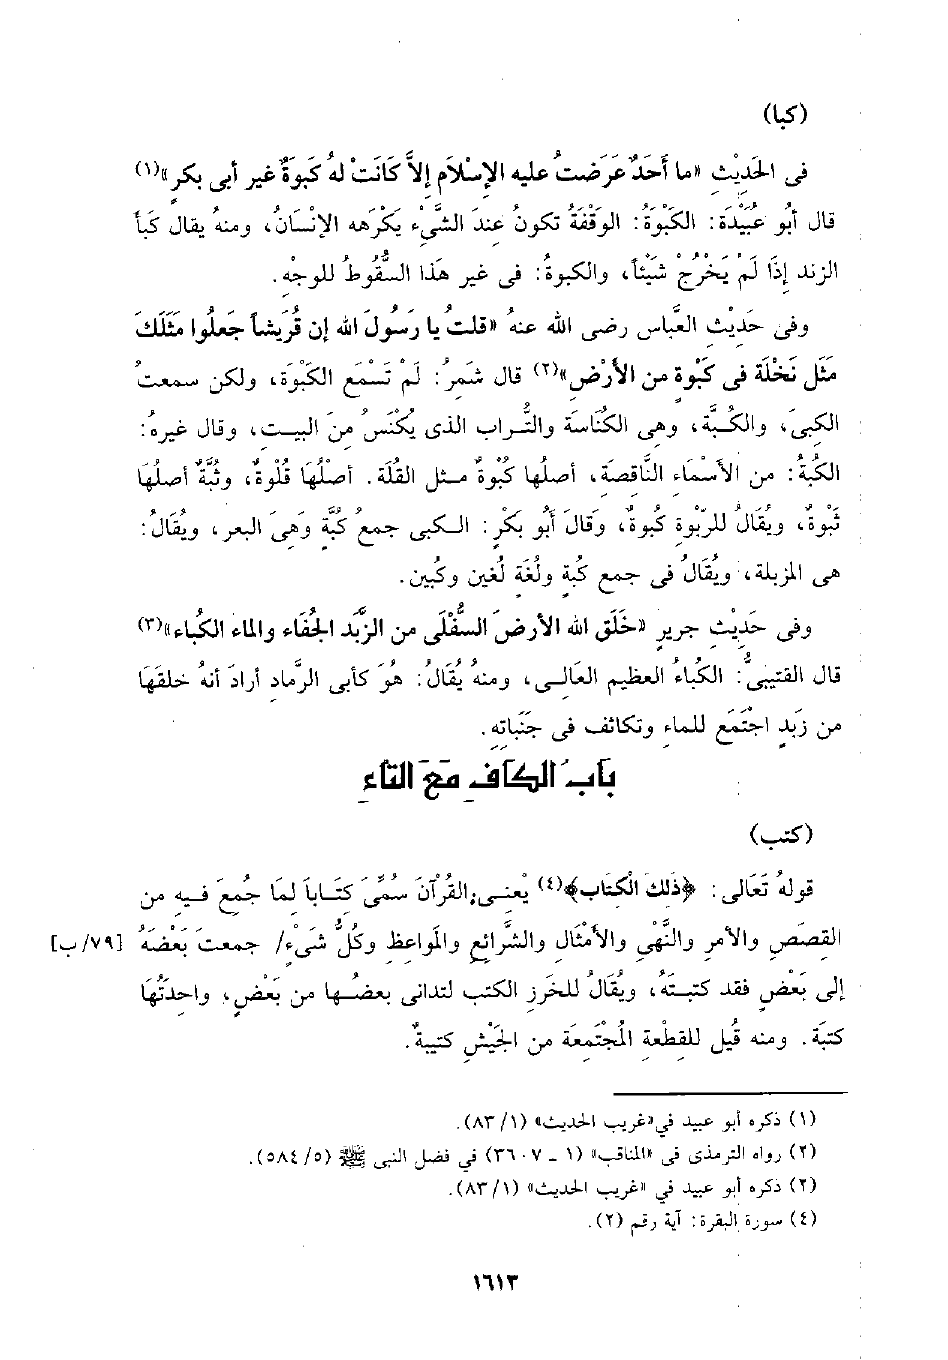 (كبا)
فى الحَدِيْثِ «ما أَحَدٌ عَرَضتُ عليه الإِسْلاَمِ إلاَّ كَانَتْ لهُ كَبَوَةٌ غير أبى بكرٍ»(١)
قال أبُو عُبَيْدَة: الكَبْوَةُ: الوَقْفَةُ تكونُ عندَ الشَّىْء يكْرَهه الإنْسَانُ، ومنهُ يقال كَبأ
الزند إذَا لَمْ يَخْرُجْ شَيْئاً، والكبوةُ: فى غير هَذا السُّقُوطُ للوجْهِ.
وفى حَديْثِ العبَّاس رضى الله عنهُ «قلتُ يا رَسُولَ الله إن قُرَيشاً جَعلُوا مَثَلَكَ
مَثَل نَخْلَة فى كَبْوةٍ من الأَرْضِ»(٢) قال شَمرُ: لَمْ تَسْمَع الكَبْوَة، ولكن سمعتُ
الكبىَ، والكُبَّة، وهى الكُنَاسَة والتُّراب الذى يُكْنَسُ منَ البيتِ، وقال غيرهُ:
الكُبَةُ: من الأَسْمَاءِ النَّاقِصَة، أصلُها كُبْوةٌ مثل القُلَة. أصْلُها قُلْوةٌ، وثُبَّةٌ أصلُها
ثَبْوةٌ، ويُقَالُ للرّبْوةِ كُبوةٌ، وقَالَ أَبُو بكْرٍ: الكبى جمعُ كُبَّةٍ وَهىَ البعر، ويُقَالُ:
هى المزبلة، ويُقَالُ فى جمع كُبةٍ ولُغَةٍ لُغين وكُبين.
وفى حَدِيْثِ جريرٍ «خَلَق الله الأرضَ السُّفْلَى من الزَّبَد الجُفَاء والماء الكُباء»(٣)
قال القتيبىُّ: الكُباءُ العظيم العَالى، ومنهُ يُقَالُ: هُوَ كأبى الرَّمادِ أرادَ أنهُ خلقَهَا
من زَبَدٍ اجْتَمَع للماءِ وتكاثف فى جَنَباتِهِ.
بابُ الكافِ مَعَ التاءِ
(كتب)
قولهُ تَعَالى: ﴿ذلكَ الْكتابِ﴾(٤) يْعنى القُرْآنَ سُمَّىَ كتَاباً لمَا جُمعَ فيه من
القصَصِ والأمرِ والنَّهْىِ والأمْثَال والشَّرائعِ والمَواعظِ وكُلُّ شىْءٍ/ جمعتَ بَعْضَهُ [٧٩/ ب]
إلى بَعْضٍ فقد كتبتَهُ، ويُقَالُ للخَرزِ الكتب لتدانى بعضُها من بَعْضٍ، واحِدتُهَا
كتبَة. ومنه قُيل للقِطْعةِ المُجْتَمعَة من الجَيْشِ كتيبةٌ.
(١) ذكره أبو عبيد في «غريب الحديث» (١ /٨٣).
(٢) رواه الترمذى فى «المناقب» (١ ـ ٣٦٠٧) في فضل النبى ﷺ (٥/ ٥٨٤).
(٢) ذكره أبو عبيد في «غريب الحديث» (٨٣/١).
(٤) سورة البقرة: آية رقم (٢).
١٦١٣